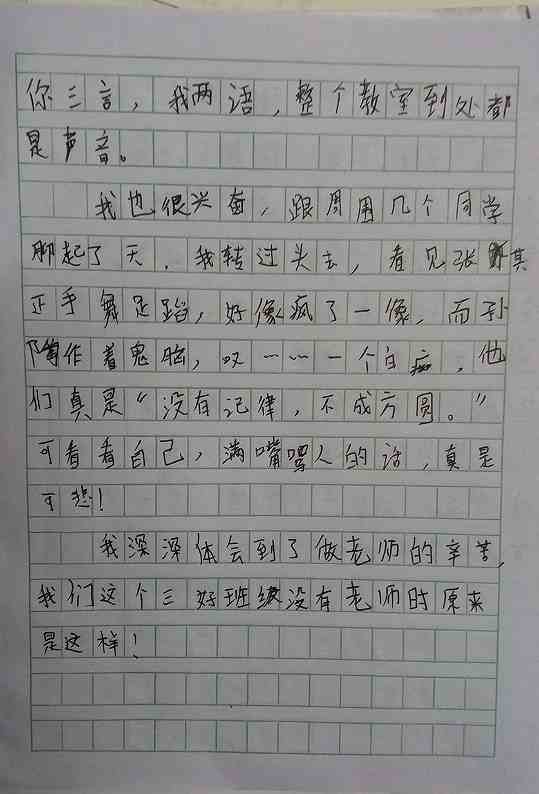 你三言，我两语，整个教室到处都
是声音。
我也很兴奋，跟周围几个同学
聊起了天．我转过头去，看见张其
正手舞足蹈，好像疯了一像，而孙
陶作着鬼脸，哎……一个白痴，他
们真是“没有记律，不成方圆。”
可看看自己，满嘴骂人的话，真是
可悲！
我深深体会到了做老师的辛苦，
我们这个三好班级没有老师时原来
是这样！